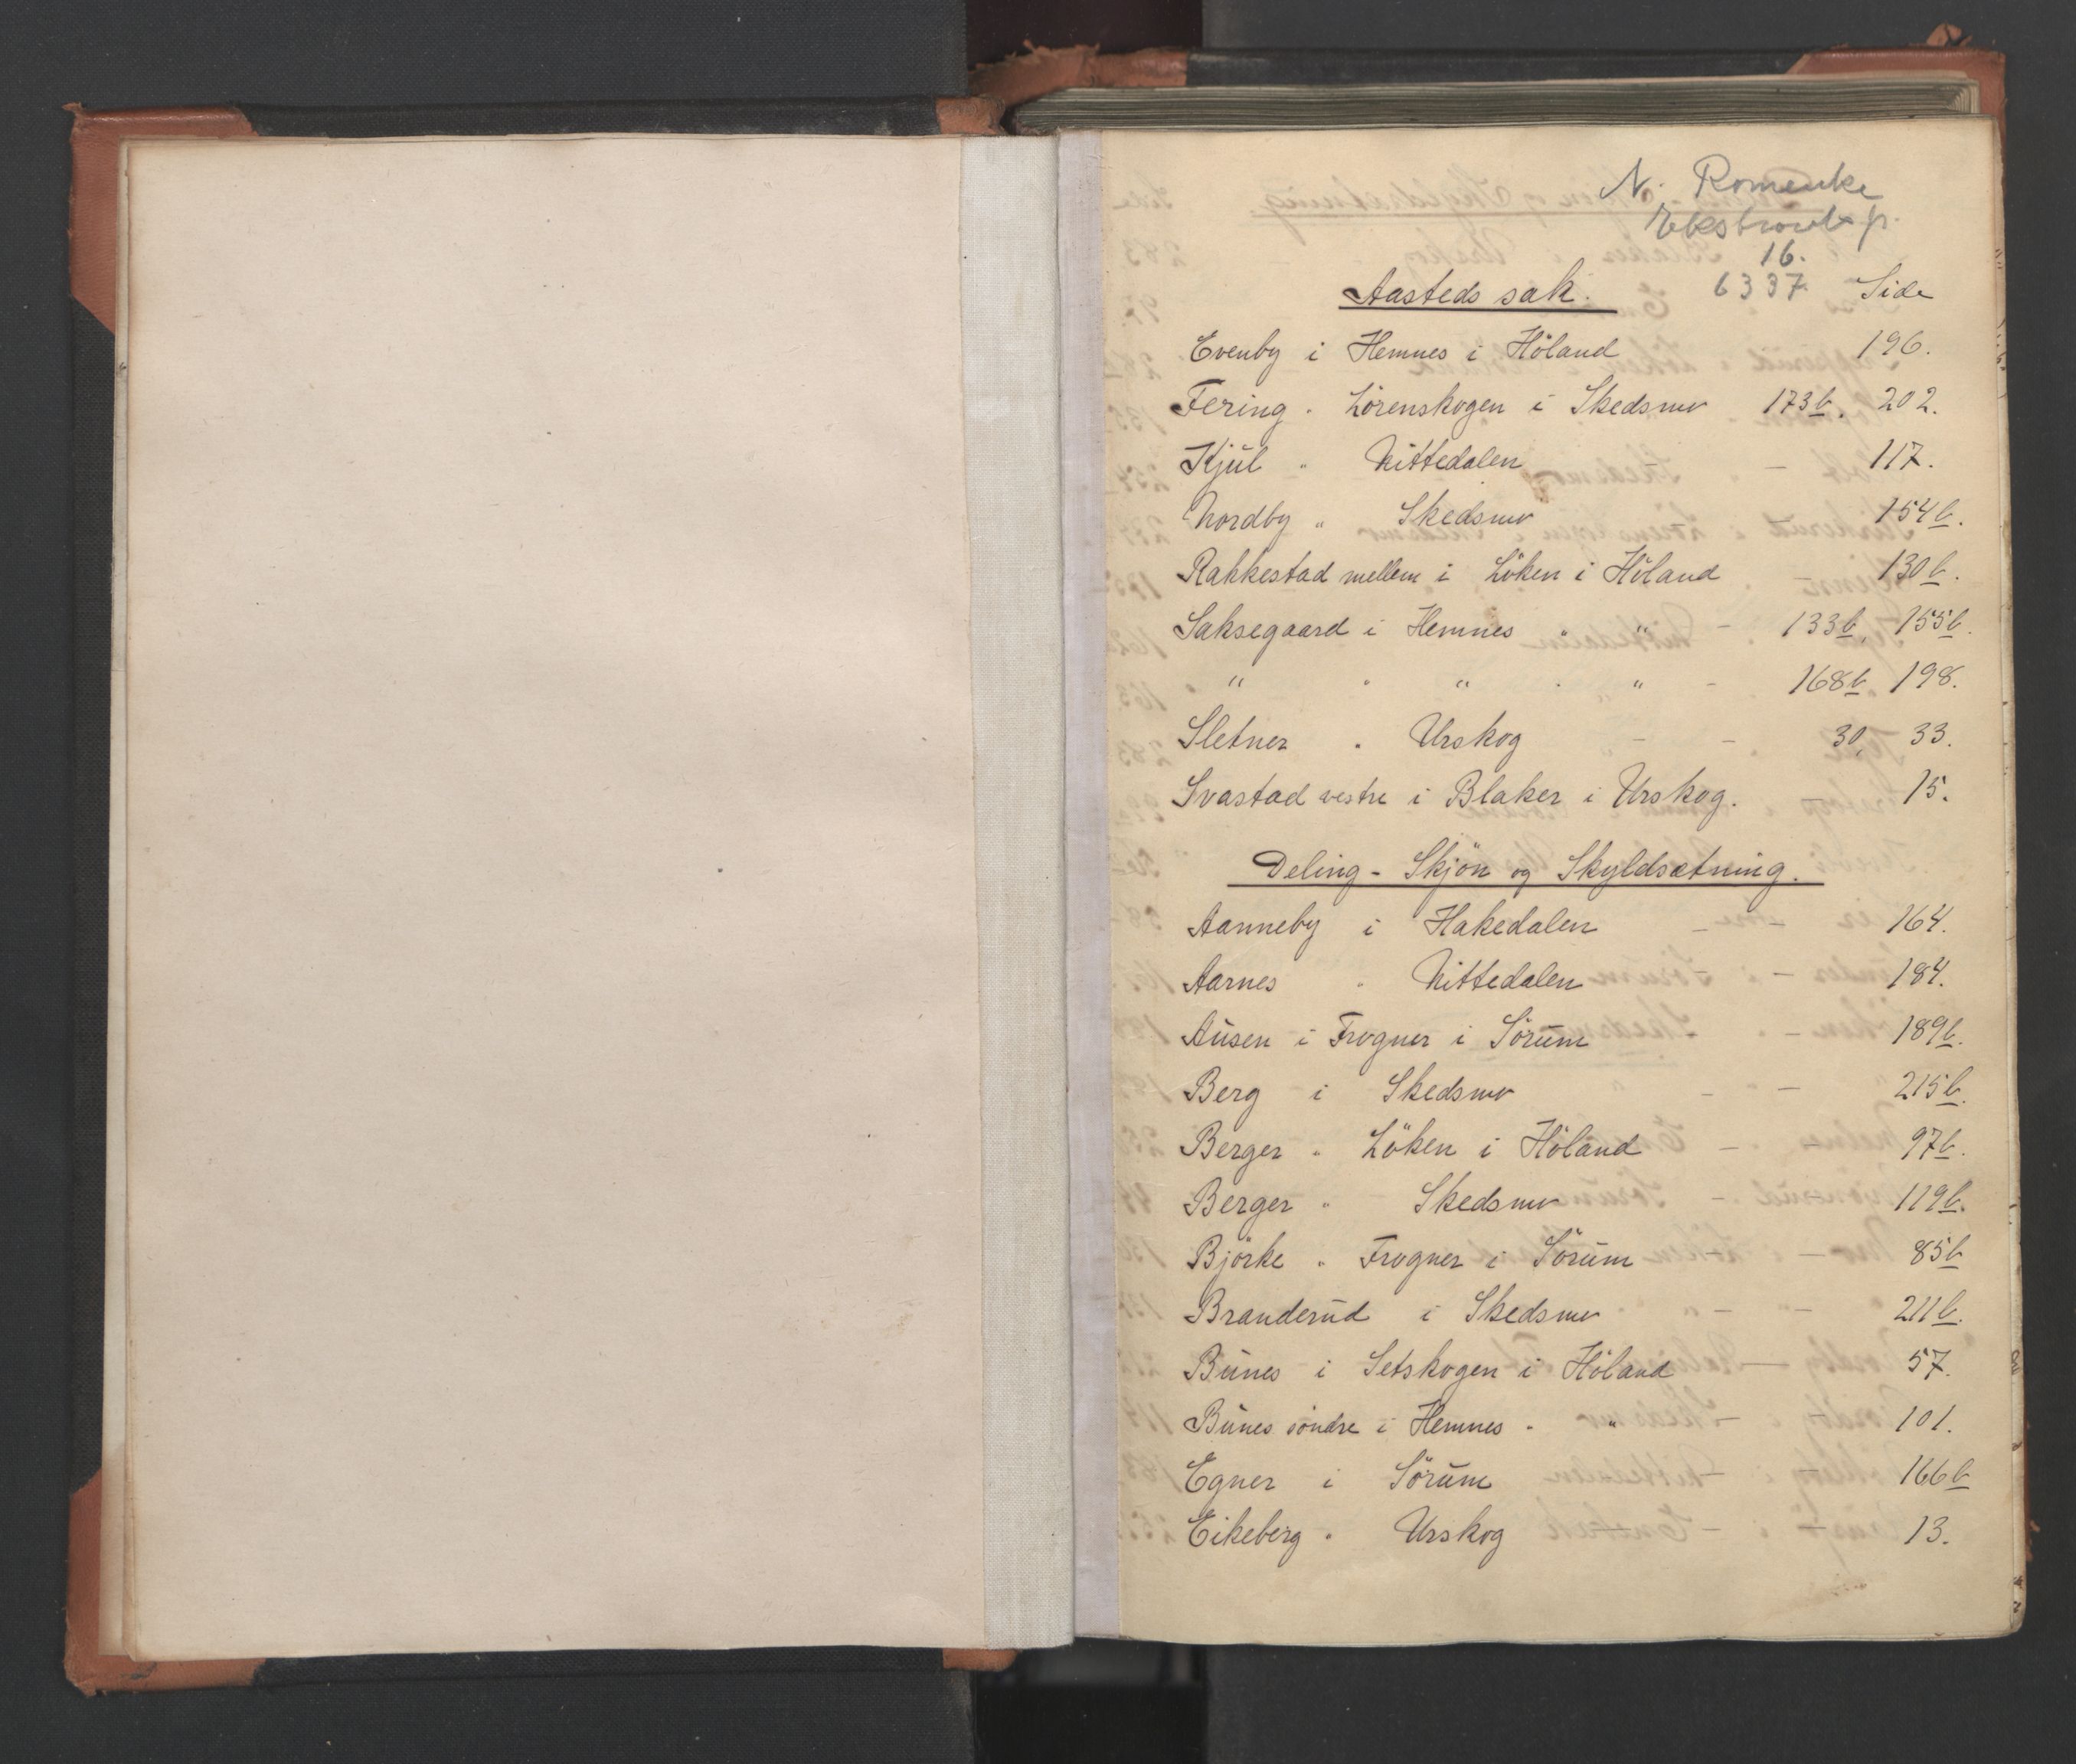 N. Romerike
Ekstraret p.
16.
6337.
Aasteds sak. Side
Evenby i Hemnes i Höland 196.
Fering " Lörenskogen i Skedsmo 173b. 202.
Kjul " Nittedalen - - 117.
Nordby " Skedsmo 154b.
Rakkestad mellem i Löken i Höland 130b.
Saksegaard i Hemnes " " - 133b, 155b.
" " " " " - 168b, 198.
Sletner " Urskog - - 30, 33.
Svastad vestre i Blaker i Urskog. 15.
Deling - Skjön og Skyldsætning.
Aanneby i Hakedalen - - 164.
Aarnes " Nittedalen - 184.
Ausen i Frogner i Sörum - 189b.
Berg i Skedsmo - - 215b.
Berger " Löken i Höland - - 97b.
Berger " Skedsmo - - 119b.
Björke " Frogner i Sörum 85b
Branderud i Skedsmo - - 211b.
Bunes i Setskogen i Höland 57.
Bunes söndre i Hemnes " " 101.
Egner i Sörum 166b
Eikeberg " Urskog 13.